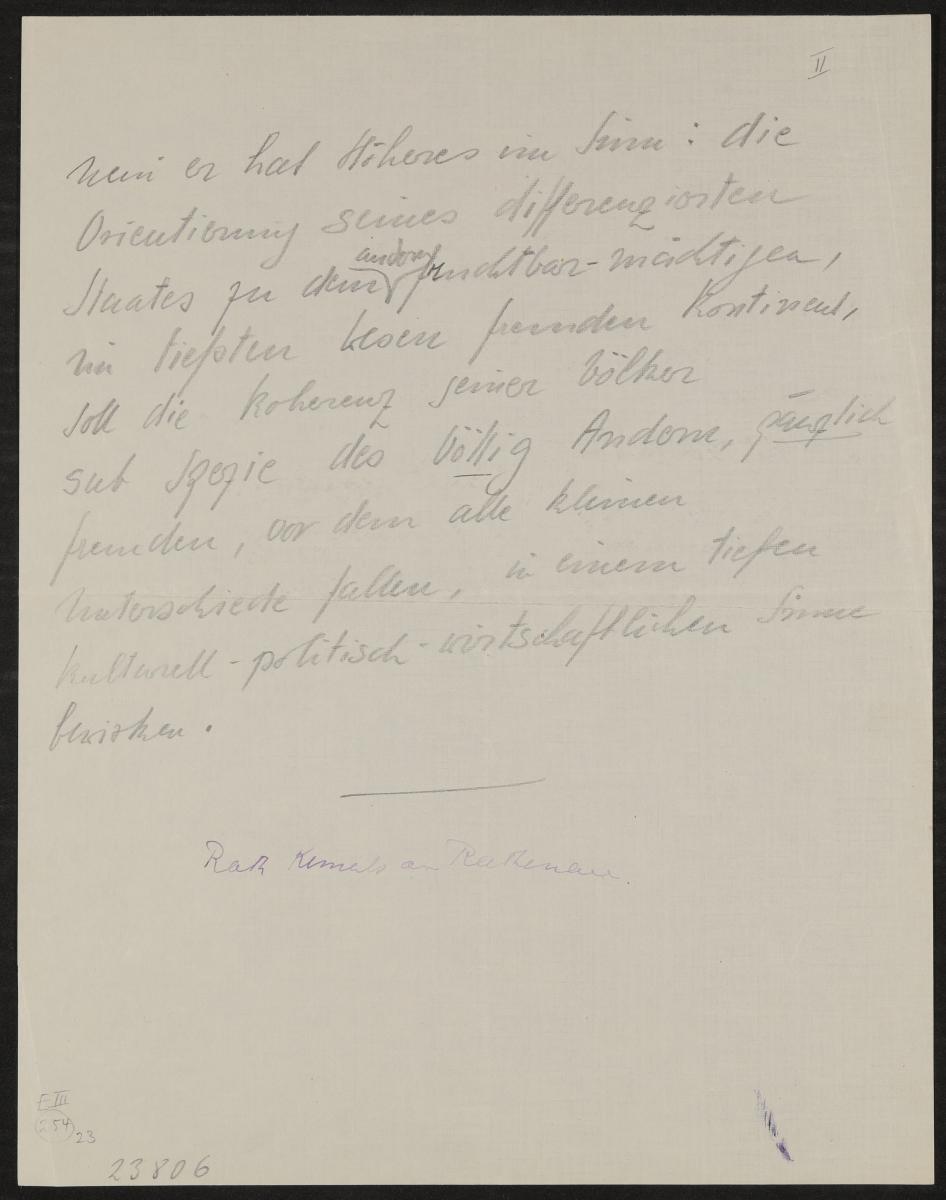 II
Nein er hat Höheres im Sinn: die
Orientierung seines differenzierten
anderen
Staates zu dem fruchtbar-mächtigen,
im tiefsten Wesen fremden Kontinent,
soll die Koherenz seiner Völker
sub Spezie des Völlig Andern, gänzlich
fremden, vor dem alle kleinen
Unterschiede fallen, in einem tiefen
kulturell-politisch-wirtschaftlichen Sinne
bewirken.
Kemals an Rathenau.
E III
254
23
23806